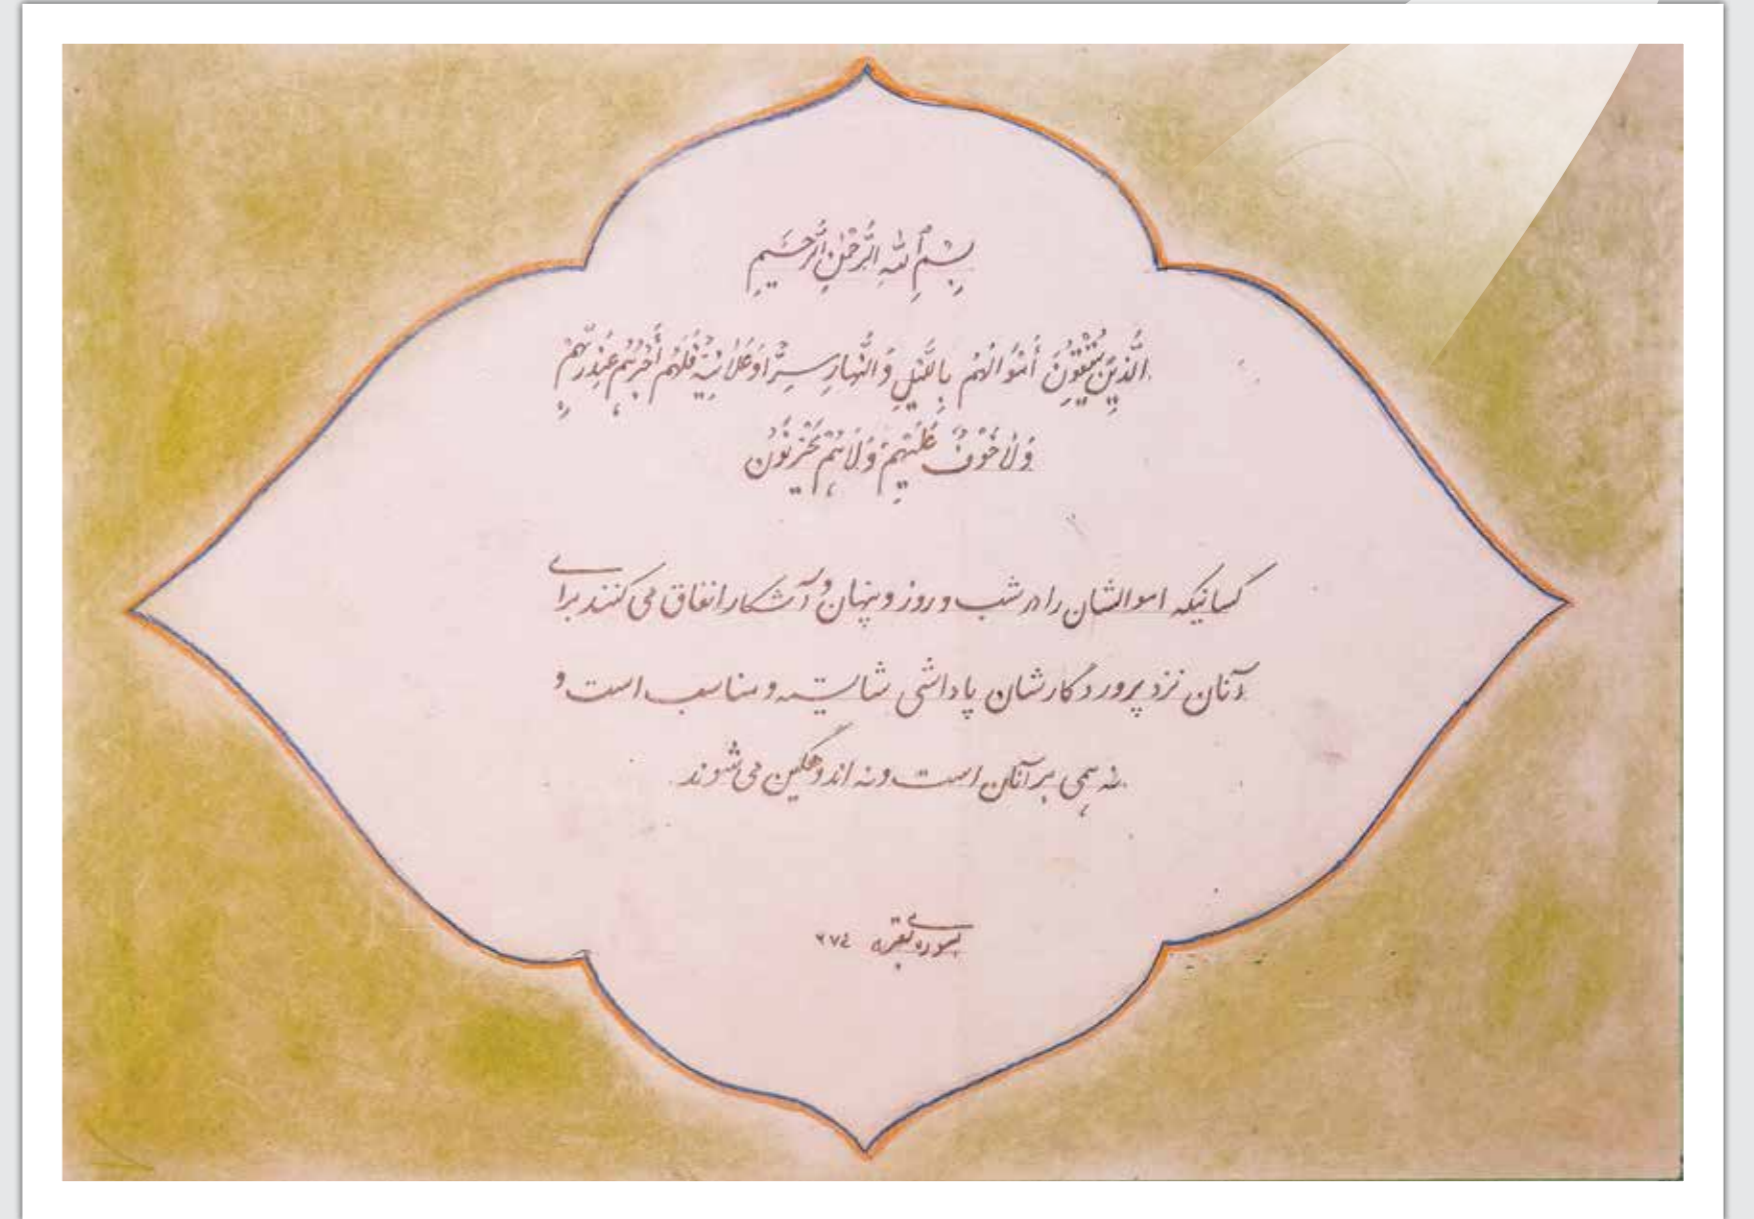 بِسْمِ اللهِ الرَّحْمٰنِ الرَّحِيمِ
الَّذِينَ يُنْفِقُونَ أَمْوَالَهُمْ بِاللَّيْلِ وَالنَّهَارِ سِرًّا وَعَلَانِيَةً فَلَهُمْ أَجْرُهُمْ عِنْدَ رَبِّهِمْ
وَلَا خَوْفٌ عَلَيْهِمْ وَلَا هُمْ يَحْزَنُونَ
کسانیکه اموالشان را در شب و روز و پنهان و آشکار انفاق می کنند برای
آنان نزد پروردگارشان پاداشی شایسته و مناسب است و
نه بیمی بر آنان است و نه اندوهگین می شوند.
سوره ی بقره ۲۷٤